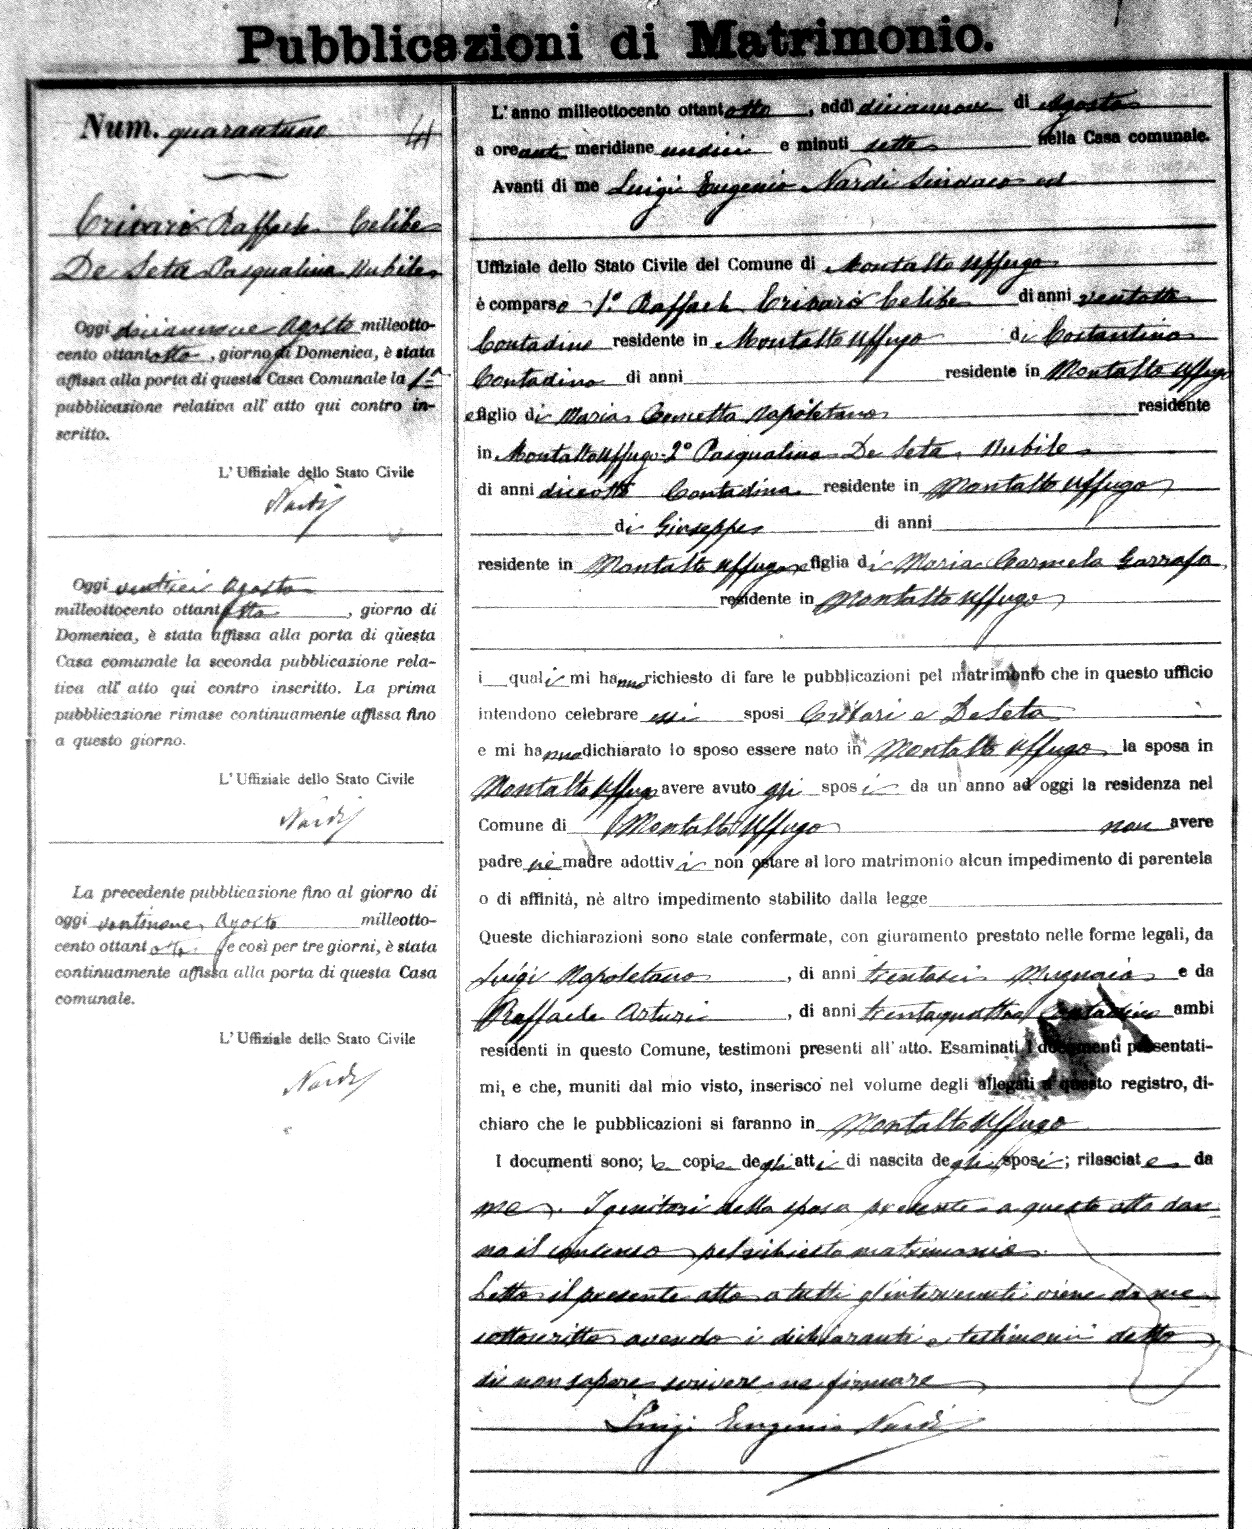 Pubblicazioni di Matrimonio.
Num. quarantuno 41
Crivari Raffaele Celibe
De Seta Pasqualina Nubile
Oggi diciannove Agosto milleotto-
cento ottantotto, giorno di Domenica, è stata
affissa alla porta di questa Casa Comunale la 1ª
pubblicazione relativa all' atto qui contro in-
scritto.
L' Uffiziale dello Stato Civile
Nardi
Oggi ventisei Agosto
milleottocento ottantotto, giorno di
Domenica, è stata affissa alla porta di questa
Casa comunale la seconda pubblicazione rela-
tiva all' atto qui contro inscritto. La prima
pubblicazione rimase continuamente affissa fino
a questo giorno.
L' Uffiziale dello Stato Civile
Nardi
La precedente pubblicazione fino al giorno di
oggi ventinove Agosto milleotto-
cento ottantotto e così per tre giorni, è stata
continuamente affissa alla porta di questa Casa
comunale.
L' Uffiziale dello Stato Civile
Nardi
L' anno milleottocento ottantotto, addì diciannove di Agosto
a ore anti meridiane undici e minuti sette nella Casa comunale.
Avanti di me Luigi Eugenio Nardi Sindaco ed
Uffiziale dello Stato Civile del Comune di Montalto Uffugo
è comparso 1º Raffaele Crivari Celibe di anni ventotto
Contadino residente in Montalto Uffugo di Costantino
Contadino di anni residente in Montalto Uffugo
e figlio di Maria Concetta Napoletano residente
in Montalto Uffugo- 2º Pasqualina De Seta, Nubile
di anni diciotto Contadina residente in Montalto Uffugo
di Giuseppe di anni
residente in Montalto Uffugo e figlia di Maria Carmela Garrafa
residente in Montalto Uffugo
i quali mi hanno richiesto di fare le pubblicazioni pel matrimonio che in questo ufficio
intendono celebrare essi sposi Crivari e De Seta
e mi hanno dichiarato lo sposo essere nato in Montalto Uffugo, la sposa in
Montalto Uffugo avere avuto gli sposi da un anno ad oggi la residenza nel
Comune di Montalto Uffugo non avere
padre nè madre adottivi non ostare al loro matrimonio alcun impedimento di parentela
o di affinità, nè altro impedimento stabilito dalla legge
Queste dichiarazioni sono state confermate, con giuramento prestato nelle forme legali, da
Luigi Napoletano, di anni trentasei Mugnaio e da
Raffaele Arturi, di anni trentaquattro Contadino ambi
residenti in questo Comune, testimoni presenti all' atto. Esaminati i documenti presentati-
mi, e che, muniti dal mio visto, inserisco nel volume degli allegati a questo registro, di-
chiaro che le pubblicazioni si faranno in Montalto Uffugo
I documenti sono; le copie degli atti di nascita degli sposi; rilasciate da
me. I genitori della sposa presenti a questo atto dan-
no il consenso pel richiesto matrimonio
Letto il presente atto a tutti gl'intervenuti viene da me
sottoscritto avendo i dichiaranti e testimonii detto
di non sapere scrivere ne firmare
Luigi Eugenio Nardi